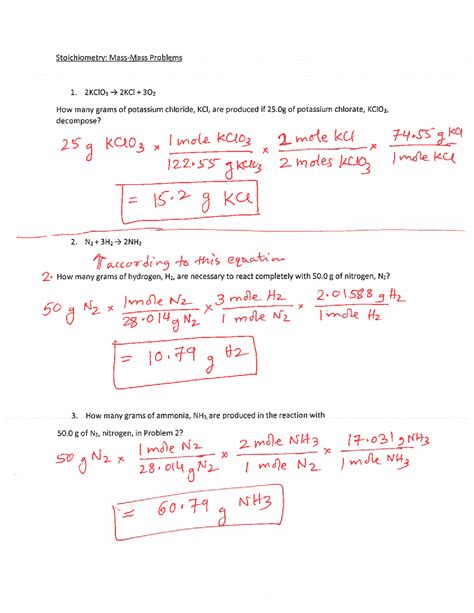 Stoichiometry: Mass-Mass Problems
1. 2KClO₃ → 2KCl + 3O₂
How many grams of potassium chloride, KCl, are produced if 25.0g of potassium chlorate, KClO₃,
decompose?
25 g KClO3 × 1 mole KClO3 / 122.55 g KClO3 × 2 mole KCl / 2 moles KClO3 × 74.55 g KCl / 1 mole KCl
= 15.2 g KCl
2. N₂ + 3H₂ → 2NH₃
⇑ according to this equation
2. How many grams of hydrogen, H₂, are necessary to react completely with 50.0 g of nitrogen, N₂?
50 g N2 × 1 mole N2 / 28.014 g N2 × 3 mole H2 / 1 mole N2 × 2.01588 g H2 / 1 mole H2
= 10.79 g H2
3. How many grams of ammonia, NH₃, are produced in the reaction with
50.0 g of N₂, nitrogen, in Problem 2?
50 g N2 × 1 mole N2 / 28.014 g N2 × 2 mole NH3 / 1 mole N2 × 17.031 g NH3 / 1 mole NH3
= 60.79 g NH3